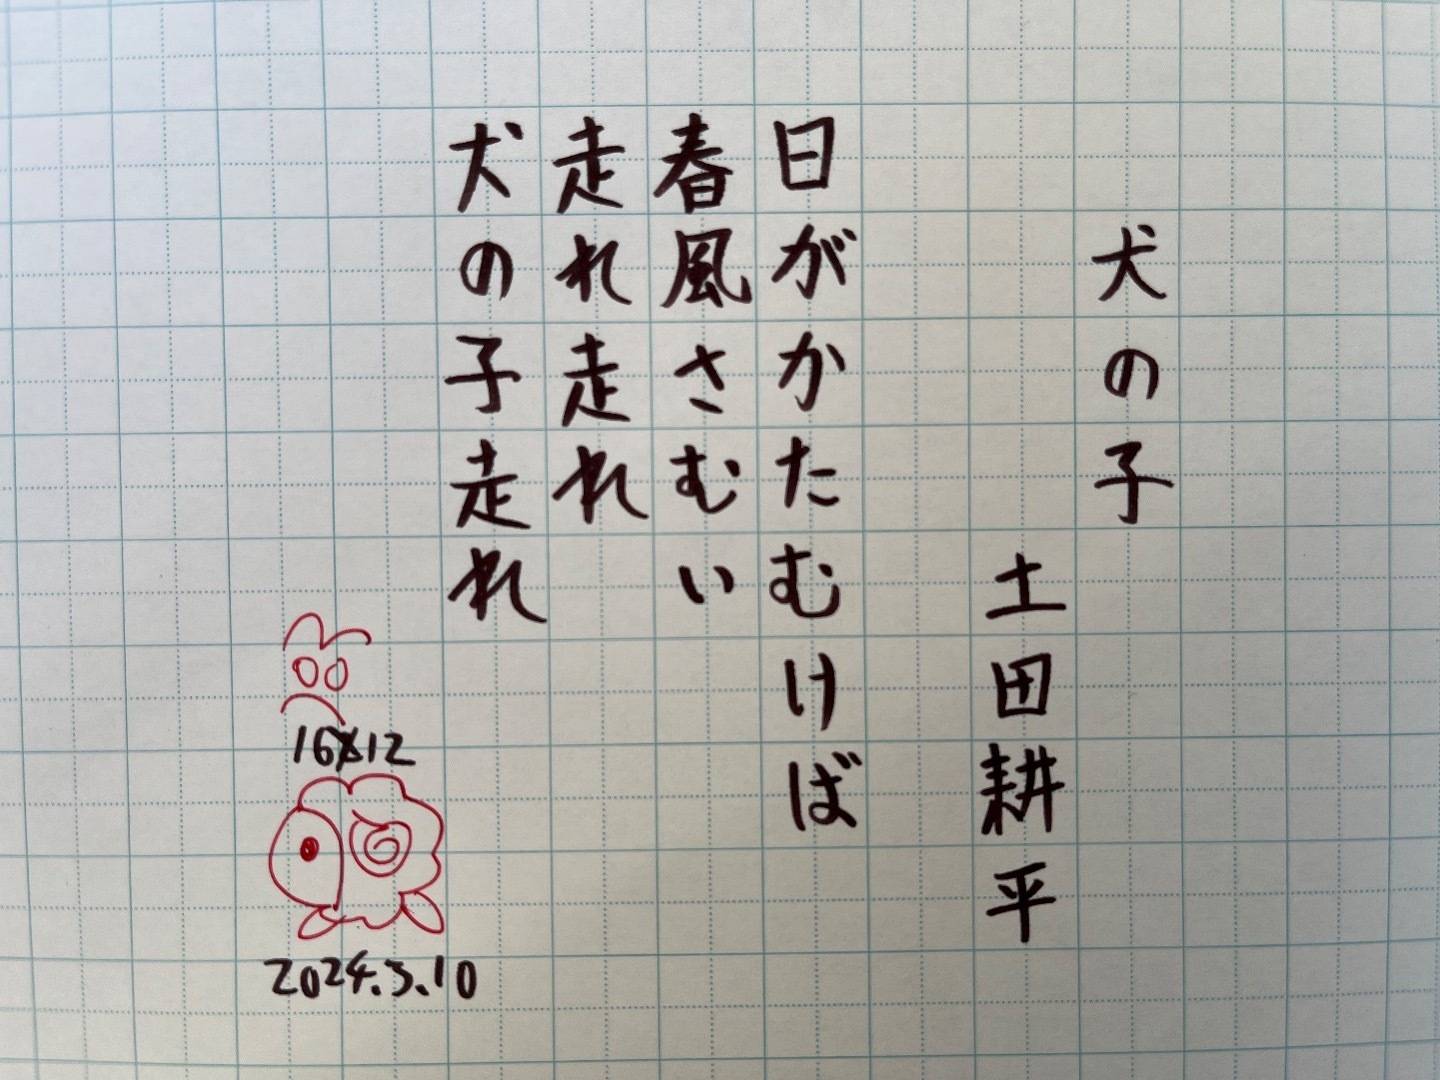 犬の子
土田耕平
日がかたむけば
春風さむい
走れ走れ
犬の子走れ
16×12
2024.3.10